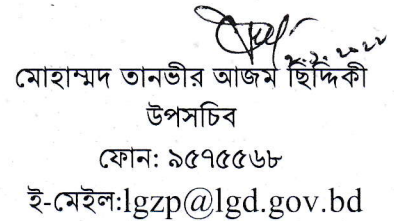 ২.২.২০২২
মোহাম্মদ তানভীর আজম ছিদ্দিকী
উপসচিব
ফোন: ৯৫৭৫৫৬৮
ই-মেইল:lgzp@lgd.gov.bd